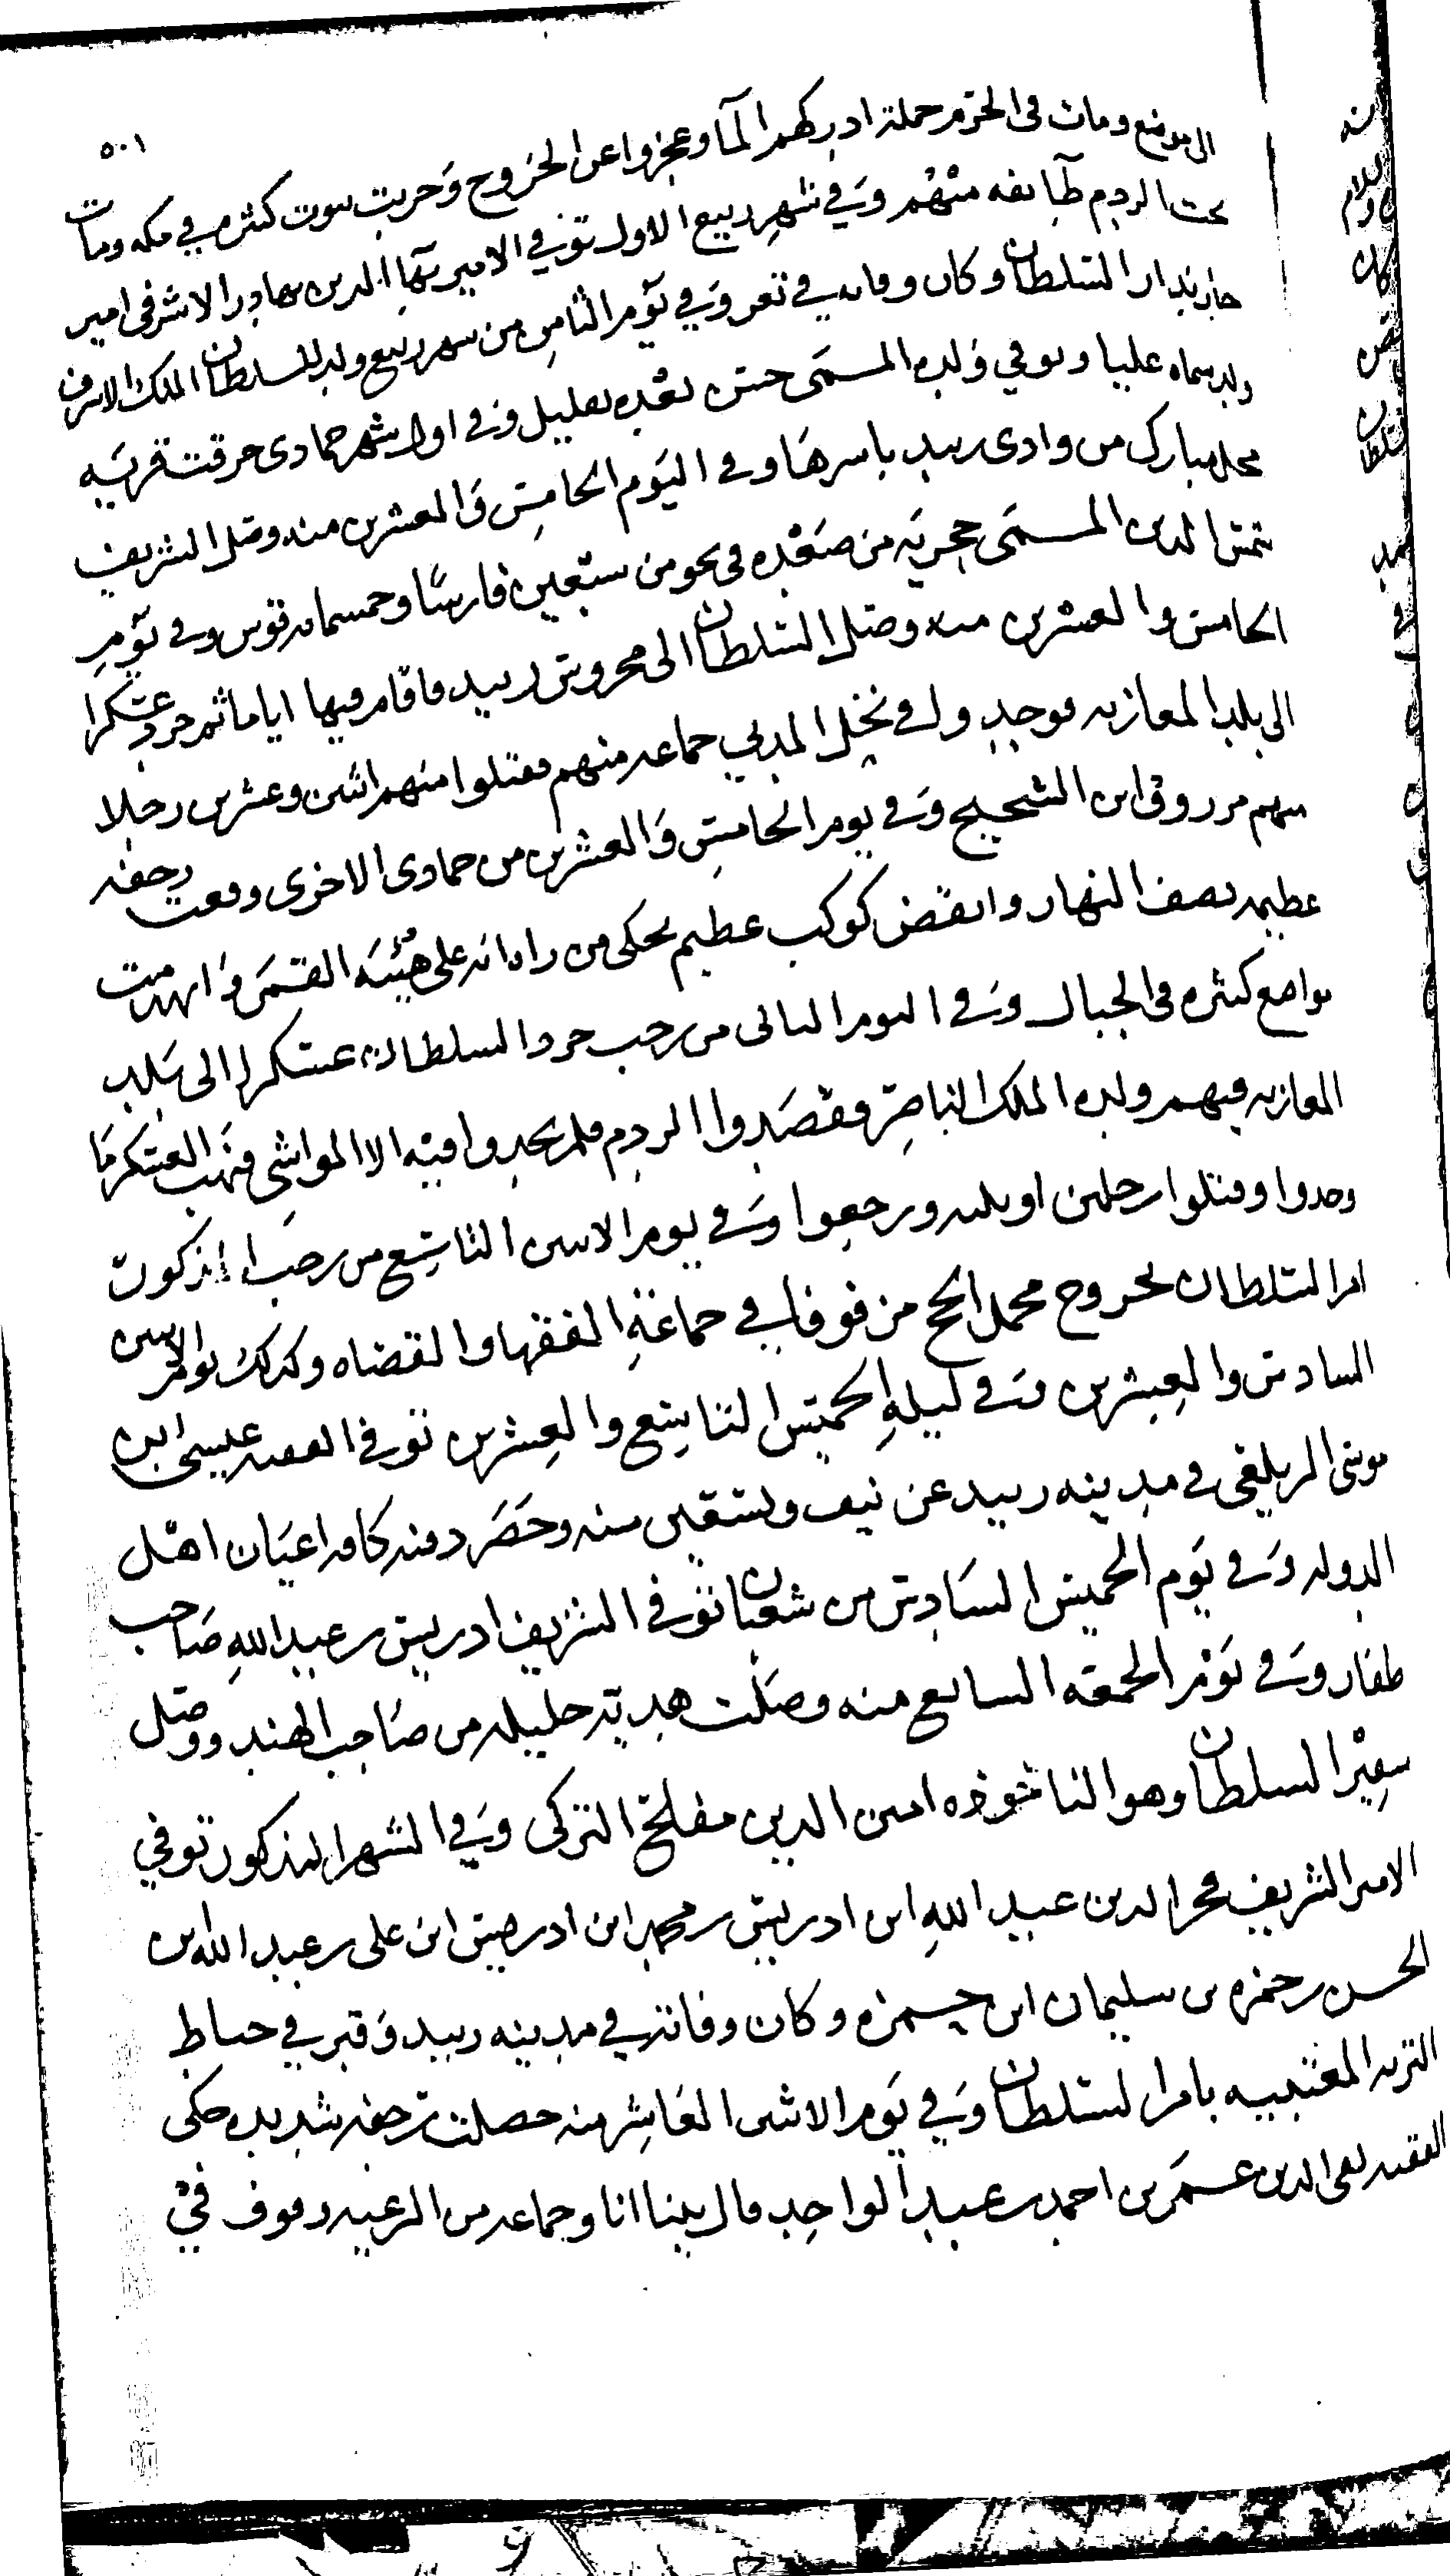 ٥٠١
الى موضع ومات فى الحرم حملة ادركهم المآ وعجزوا عن الخروج وخربت بيوت كثيره في مكه ومات
تحت الردم طآئفه منهم وفي شهر ربيع الاول توفي الامير بهآ الدين بهادر الاشرفى امير
خازندار السلطان وكان وفاته في تعز وفي يوم الثامن من شهر ربيع ولد للسلطان الملك الاشرف
ولد سماه عليا وتوفي ولده المسمى حسن بعده بقليل وفى اول شهر جمادى حرقت قريه
محل مبارك من وادى زبيد باسرها وفى اليوم الخامس والعشرين منه وصل الشريف
شمس الدين المسمى حجريه من صعده فى نحو من سبعين فارسا وخمسمايه قوس وفى يوم
الخامس والعشرين منه وصل السلطان الى محروس زبيد فاقام فيها اياما ثم جرد عسكرا
الى بلد المعازبه فوجدوا فى نخل المدبي جماعه منهم فقتلوا منهم اثنين وعشرين رجلا
منهم مرزوق ابن الشحيح وفى يوم الخامس والعشرين من جمادى الاخرى وقعت رجفه
عظيمه نصف النهار وانقض كوكب عظيم يحكى من راه انه على هيئه القمر وانهدمت
مواضع كثيره فى الجبال وفى اليوم الثانى من رجب جرد السلطان عسكرا الى بلد
المعازبه فيهم ولده الملك الناصر فقصدوا الردم فلم يجدوا فيه الا المواشى فنهب العسكر ما
وجدوا وقتلوا رجلين او ثلثه ورجعوا وفى يوم الاثنين التاسع من رجب المذكور
امر السلطان بخروج محمل الحج من فوفاي جماعة الفقها والقضاه وكذلك يوم الاثنين
السادس والعشرين وفى ليلة الخميس التاسع والعشرين توفى الفقيه عيسى ابن
موسى الزيلعي فى مدينه زبيد عن نيف وتسعين سنه وحضر دفنه كافه اعيان اهل
الدوله وفى يوم الخميس السادس من شعبان توفى الشريف ادريس بن عبد الله صاحب
ظفار وفى يوم الجمعه السابع منه وصلت هدية جليله من صاحب الهند ووصل
سفير السلطان وهو الناخوذه امين الدين مفلح التركى وفي الشهر المذكور توفي
الامير الشريف فخر الدين عبد الله ابن ادريس بن محمد ابن ادريس ابن على بن عبد الله بن
الحسن بن حمزه بن سليمان ابن حمزه وكان وفاته في مدينه زبيد وقبر في حياط
التربه المعتبيه بامر السلطان وفي يوم الاثنين العاشر منه حصلت رجفه شديده حكى
الفقيه تقى الدين عمر بن احمد بن عبد الواحد قال بينا انا وجماعه من الرعيه وقوف في